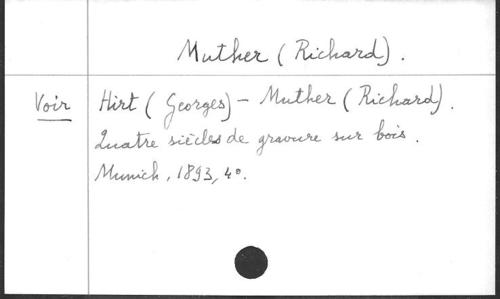 Muther (Richard).
Voir Hirt (Georges) – Muther (Richard).
Quatre siècles de gravure sur bois.
Munich, 1893, 4º.